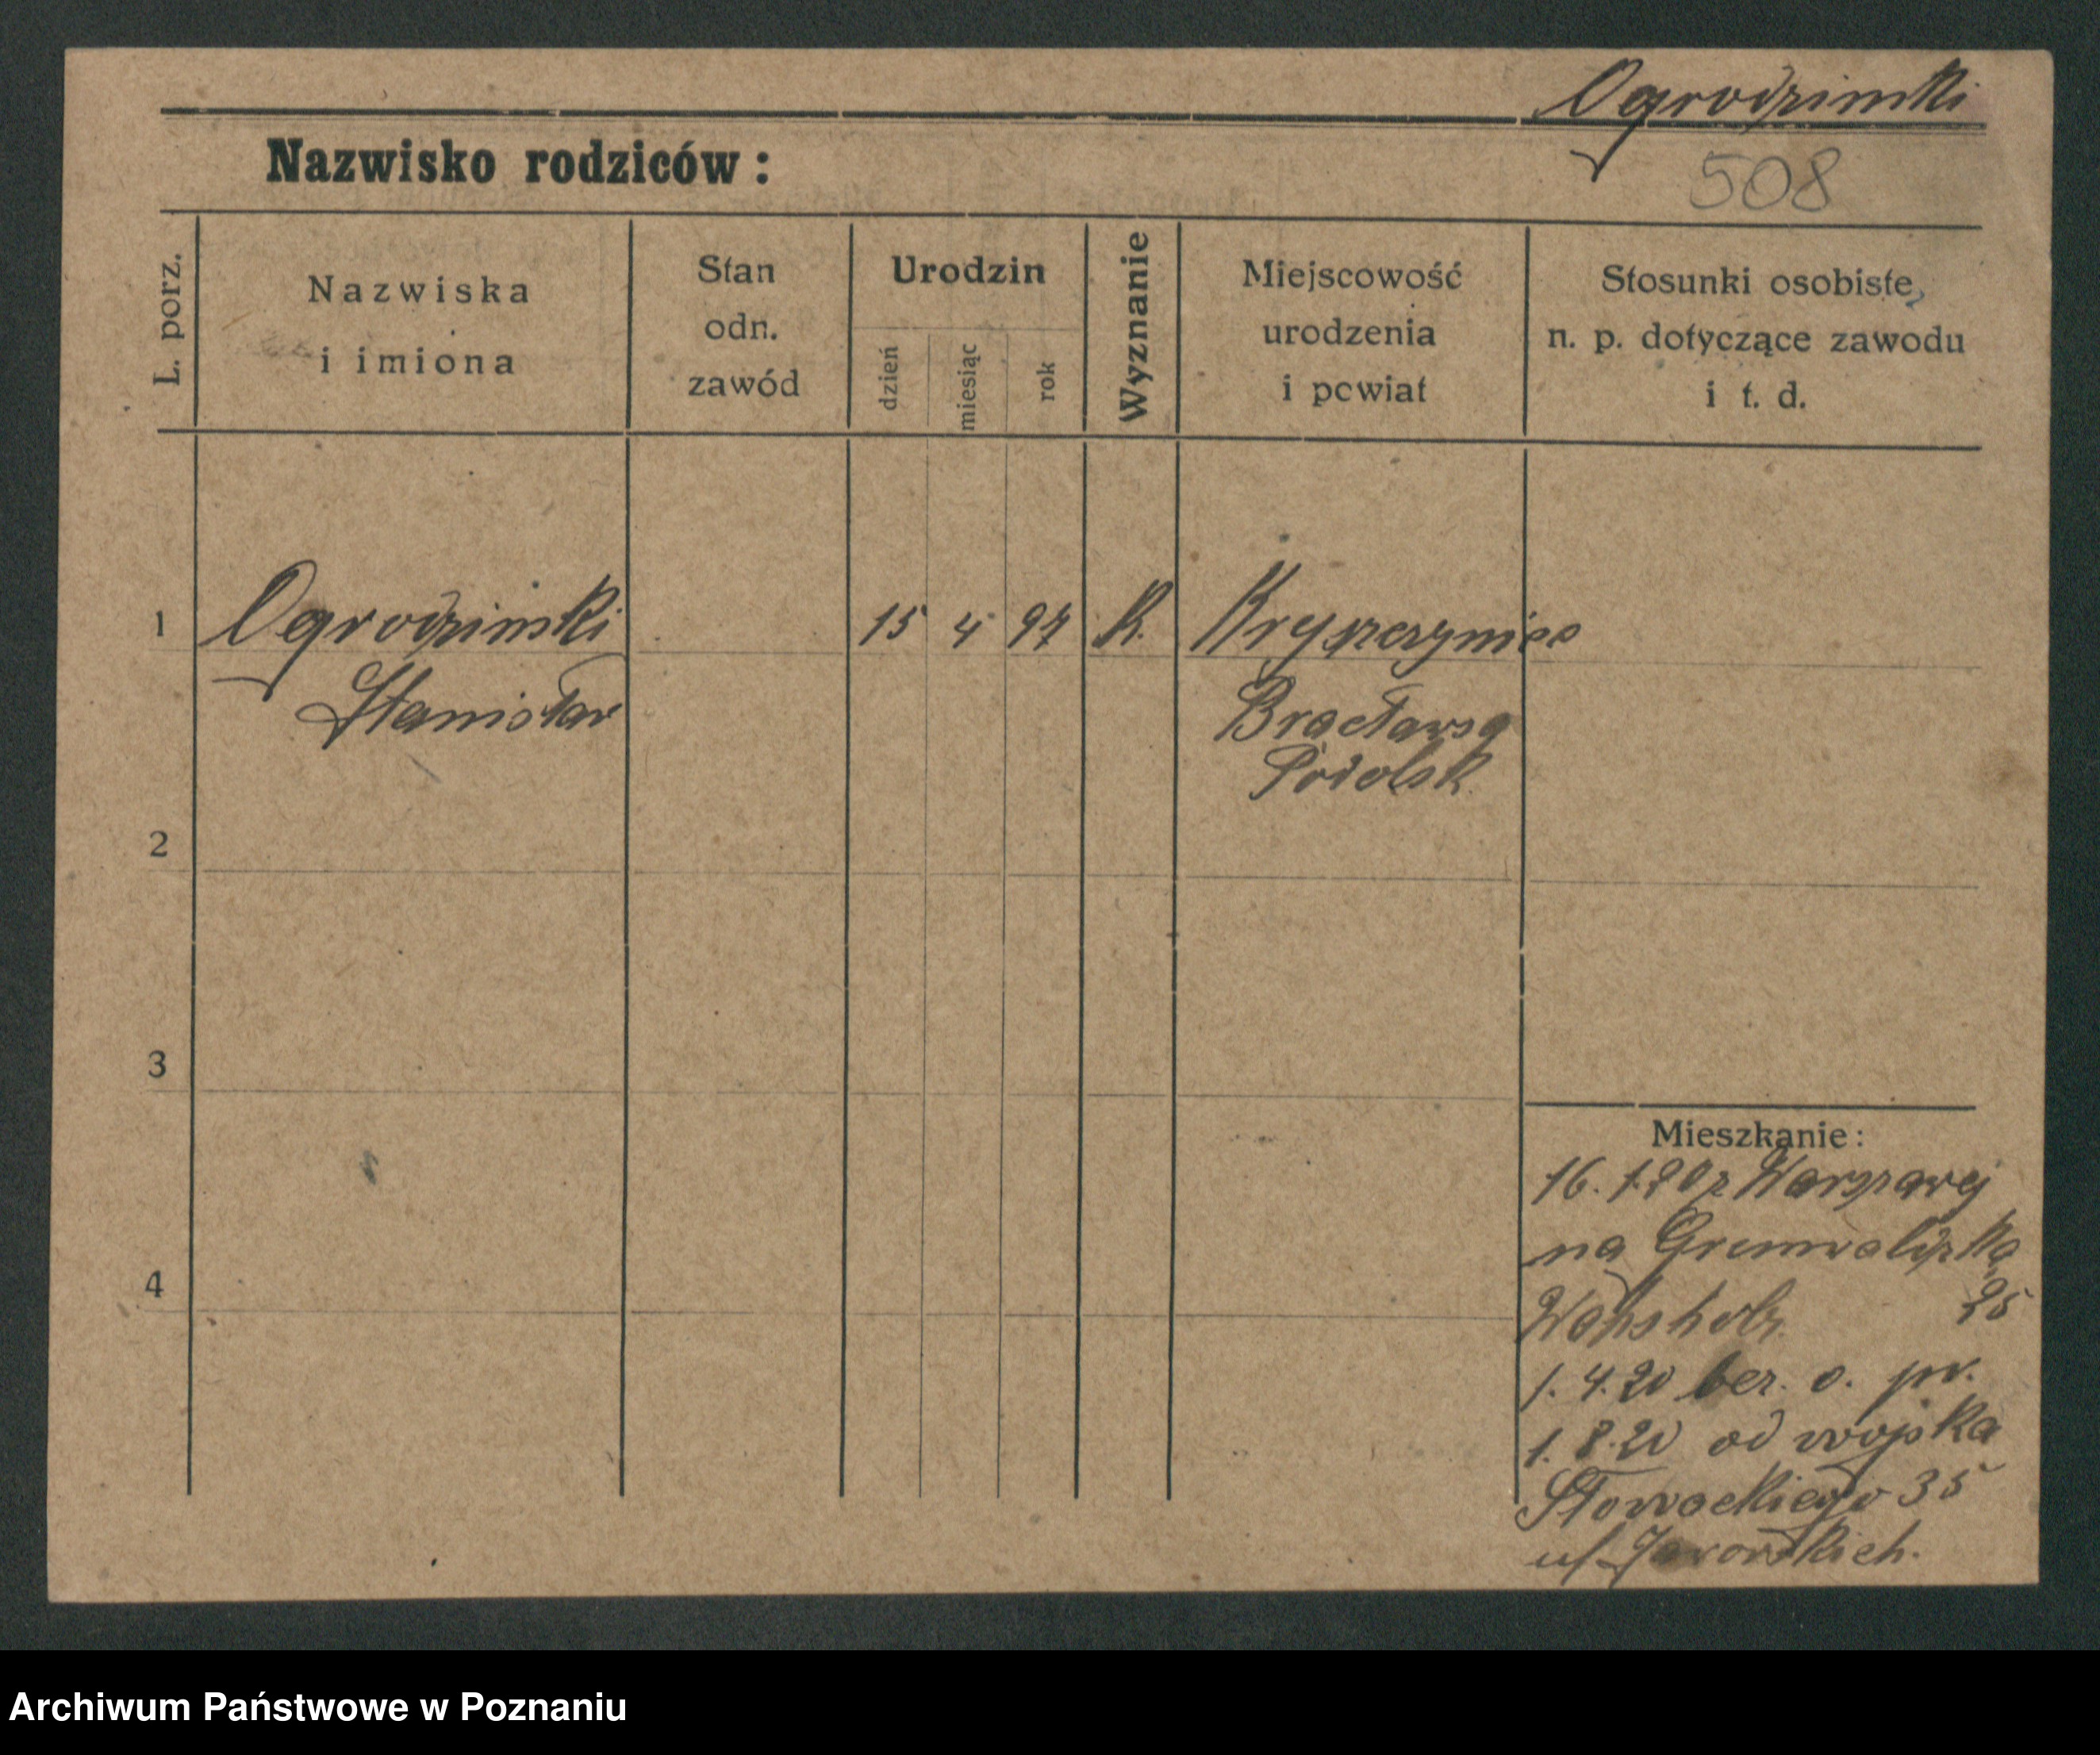 Ogrodzinski
Nazwisko rodziców:
508
L. porz.
Nazwiska
i imiona
Stan
odn.
zawód
Urodzin
dzień
miesiąc
rok
Wyznanie
Miejscowość
urodzenia
i powiat
Stosunki osobiste,
n. p. dotyczące zawodu
i t. d.
1 Ogrodzinski 15 4 97 K.
Stanisław
Bracławsg
Podolsk.
2
3
4
Mieszkanie:
16. 1.20 z Warszawy
na Grunwaldzka
25
1. 4. 20 bez. o. pr.
1. 8. 20 od wojska
Słowackiego 35
u/ Jaworskich.
Archiwum Państwowe w Poznaniu